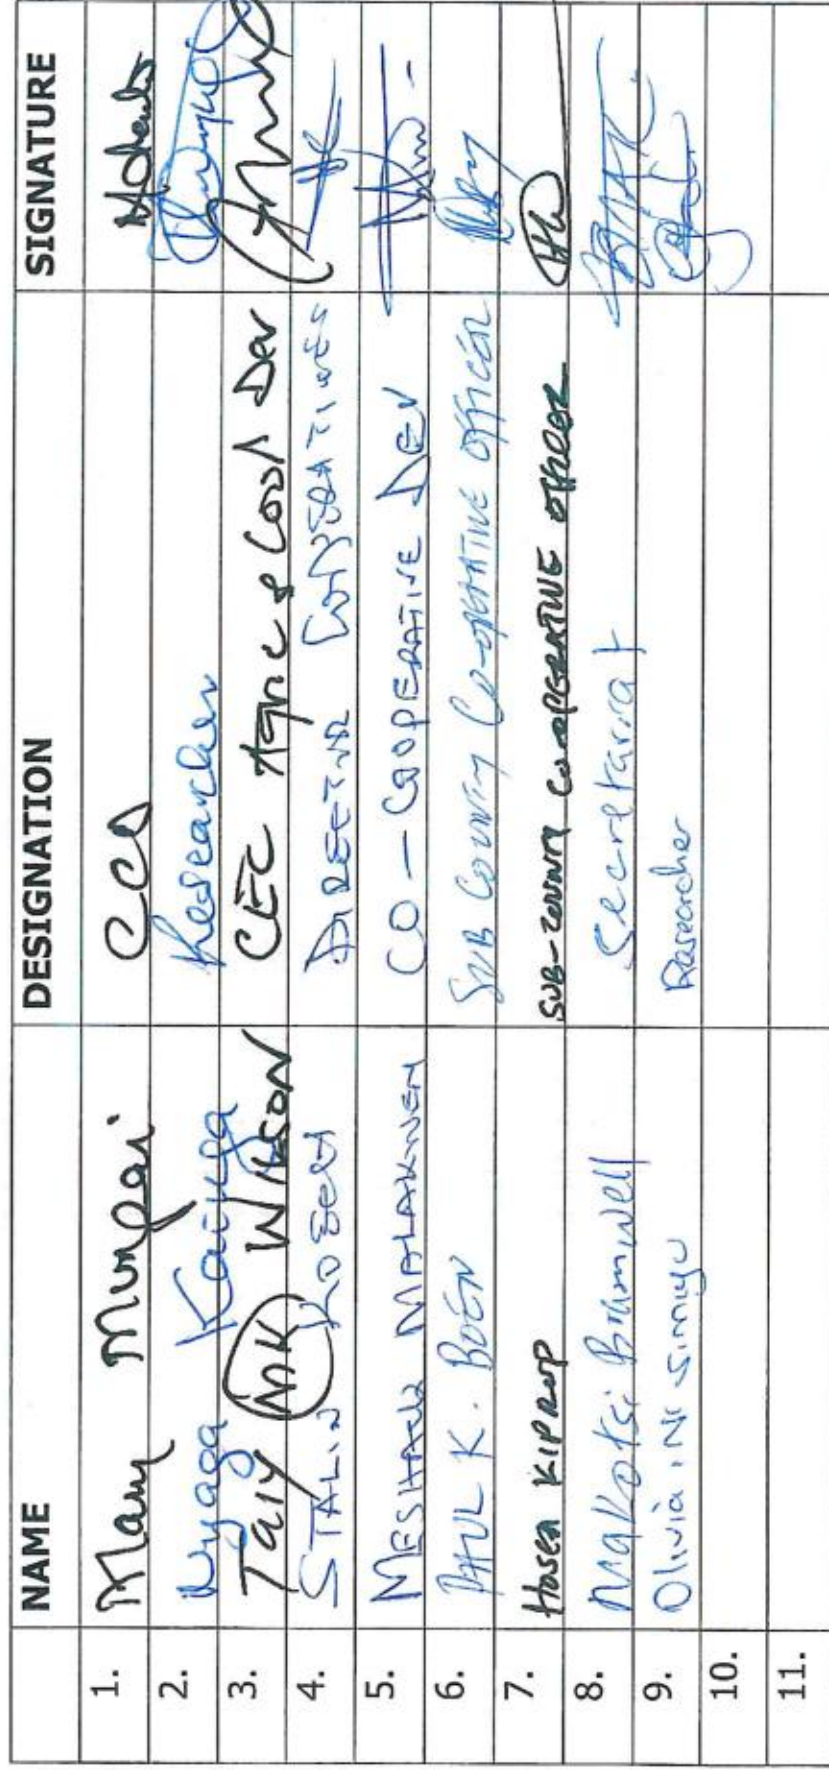 NAME DESIGNATION SIGNATURE
1. Mary Mungai CCO
2. Nyaga Kainga Researcher
3. Taiy MK Wilson CEC Agric & Coop Dev
4. STALIN KOECH DIRECTOR COOPERATIVES
5. MESHACK MALAKWEN CO-COOPERATIVE DEV
6. PAUL K. BOEN SUB COUNTY CO-OPERATIVE OFFICER
7. Hosea KIPROP SUB-COUNTY CO-OPERATIVE OFFICER
8. Makotsi Secretariat
9. Olivia .N. Simiyu Researcher
10.
11.